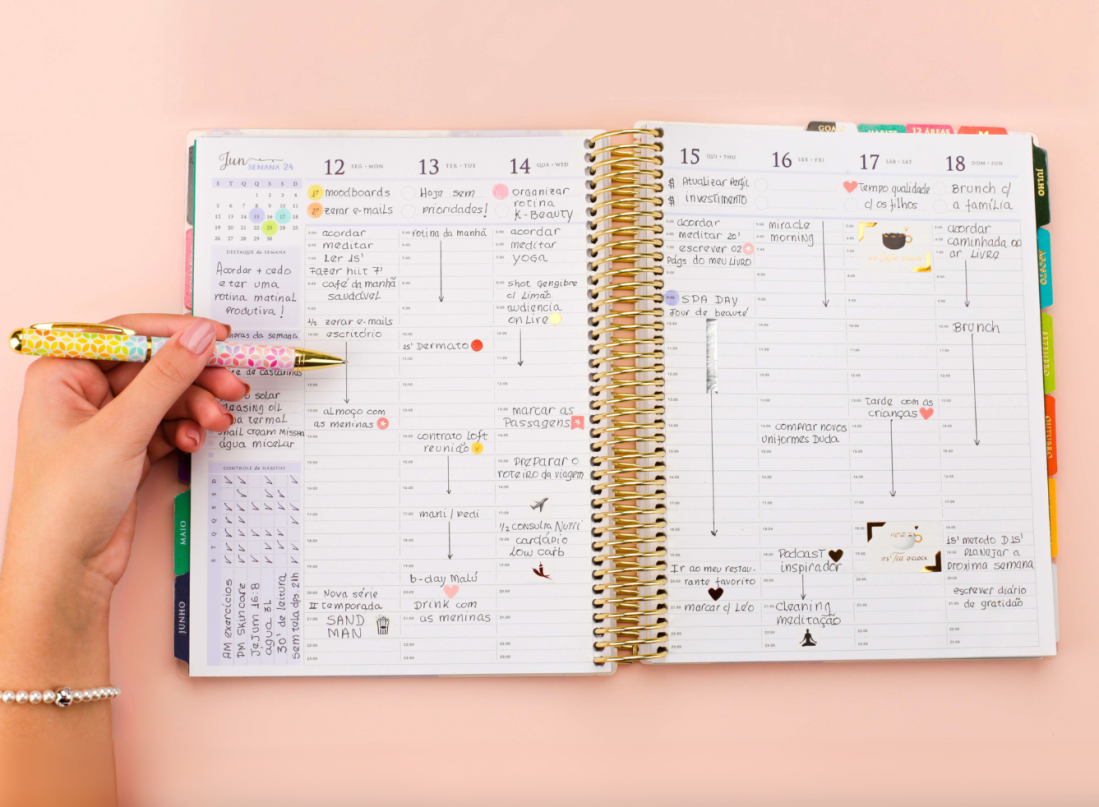 Jun
SEMANA 24
S T Q Q S S D
DESTAQUE da SEMANA
Acordar + cedo
e ter uma
rotina matinal
produtiva!
da semana
de castanhas
solar
oil
termal
água micelar
CONTROLE de HÁBITOS
AM exercícios
PM skincare
Jejum 16:8
água 3L
30' de leitura
sem tela dps. 21h
12 SEG • MON
moodboards
zerar e-mails
acordar
meditar
Ler 15'
Fazer hiit 7'
café da manhã
saudável
1/2 zerar e-mails
escritório
almoço com
as meninas
Nova série
II temporada
SAND
MAN
13 TER • TUE
Hoje sem
prioridades!
rotina da manhã
15' Dermato
contrato Loft
reunião
mani / pedi
b-day Malú
Drink com
as meninas
14 QUA • WED
organizar
rotina
K-Beauty
acordar
meditar
yoga
shot gengibre
c/ limão
audiência
on Live
marcar as
Passagens
Preparar o
roteiro da viagem
1/2 consulta Nutri
cardápio
low carb
15 QUI • THU
$ Atualizar Perfil
$ investimento
acordar
meditar 20'
escrever 02
Págs do meu Livro
SPA DAY
Tour de beauté
Ir ao meu restau-
rante favorito
marcar c/ Léo
16 SEX • FRI
miracle
morning
comprar novos
uniformes Duda
Podcast
inspirador
Cleaning
meditação
17 SÁB • SAT
Tempo qualidade
c/ os filhos
tarde com as
crianças
18 DOM • SUN
Brunch c/
a família
acordar
caminhada ao
ar Livre
Brunch
15' método D15'
Planejar a
próxima semana
escrever diário
de gratidão
GOA
HABITS
12 ÁREAS
JULHO
AGOSTO
SETEMBRO
OUTUBRO
MAIO
JUNHO